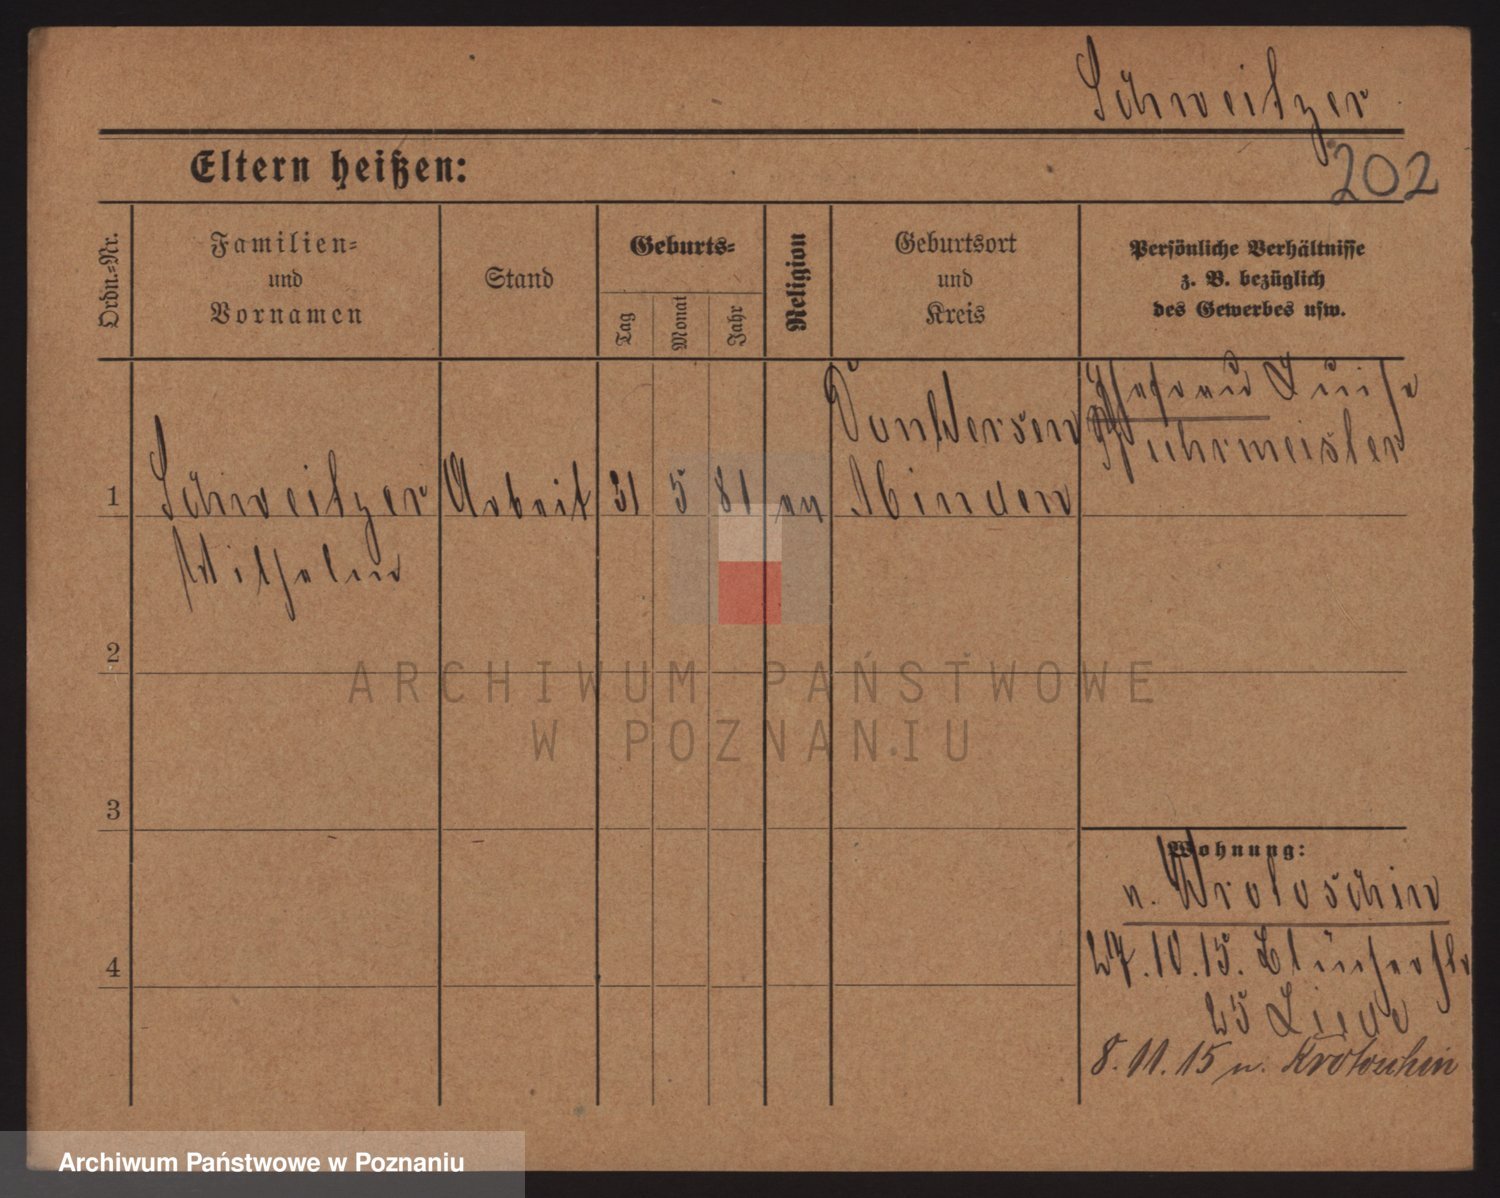 Schweitzer
202
Eltern heißen:
Ordn.-Nr.
Familien-
und
Vornamen
Stand
Geburts-
Tag
Monat
Jahr
Religion
Geburtsort
und
Kreis
Persönliche Verhältnisse
z. B. bezüglich
des Gewerbes usw.
1
Schweitzer
Wilhelm
Arbeit
31
5
81
ev
Dankersen
Minden
Ehefrau Luise
Fuhrmeister
2
3
4
Wohnung:
n. Krotoschin
27.10.15. Blücherstr
25 Liede
8.11.15 n. Krotoschin
ARCHIWUM PAŃSTWOWE
W POZNANIU
Archiwum Państwowe w Poznaniu